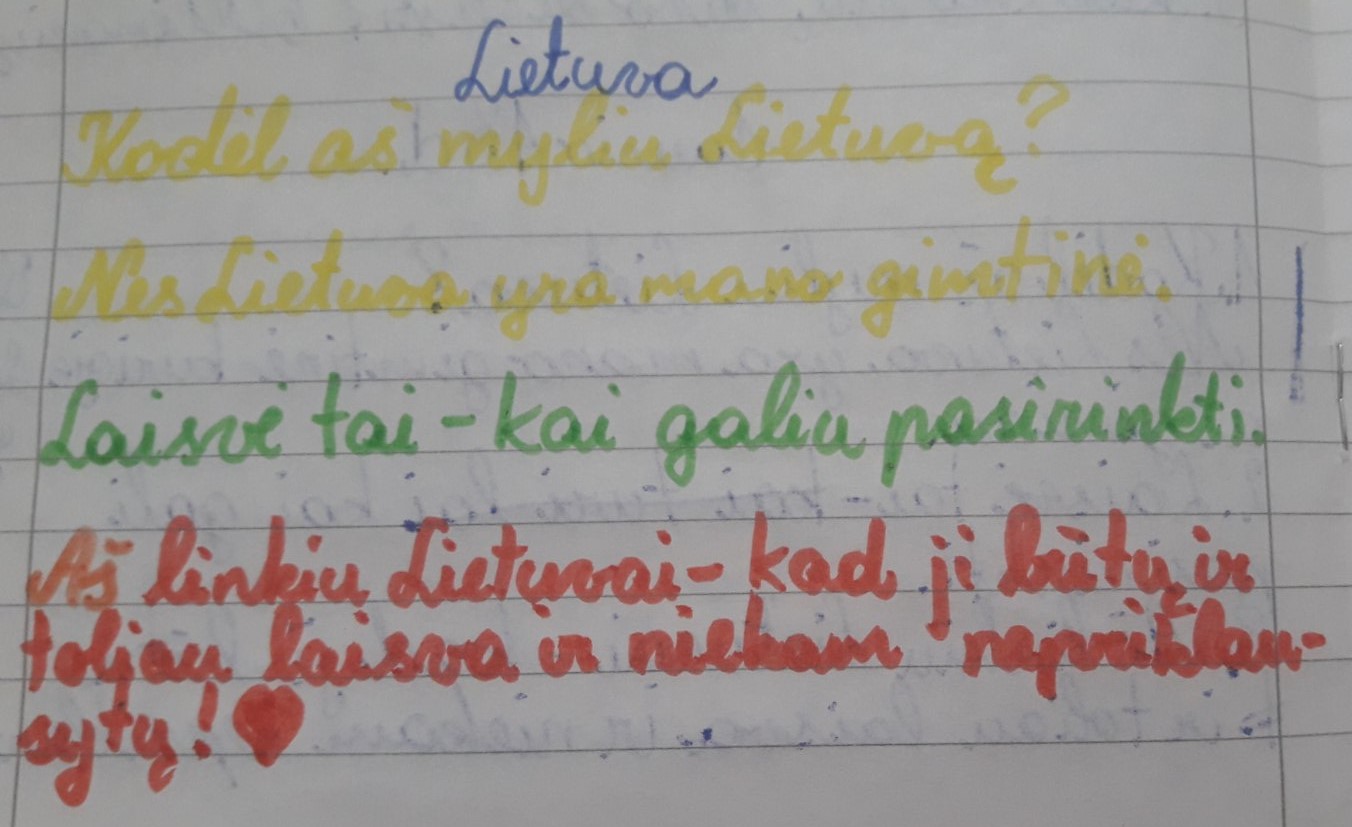 Lietuva
Kodėl aš myliu Lietuvą?
Nes Lietuva yra mano gimtinė.
Laisvė tai - kai galiu pasirinkti.
Aš linkiu Lietuvai - kad ji būtų ir
toljau laisva ir niekam nepriklau-
sytų!